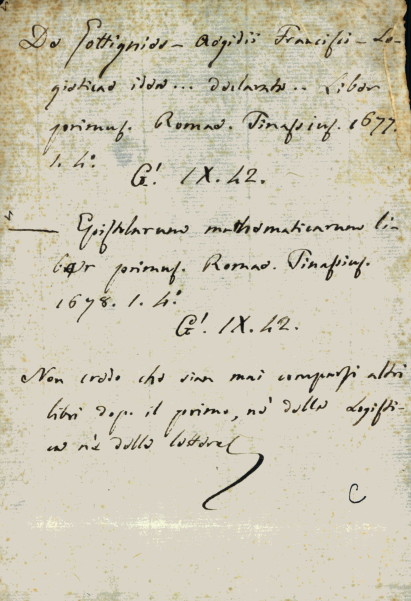 De Gottignies - Aegidii Francisci - Lo-
gisticae idea ... declarata .. Liber
primus. Romae. Tinassius. 1677.
1. 4.º
G! IX. 42.
— Epistolarum mathematicarum li-
ber primus. Romae. Tinassius.
1678. 1. 4.º
G!. IX. 42.
Non credo che sien mai comparsi altri
libri dop. il primo, nè della Logisti-
ca nè delle lettere
C